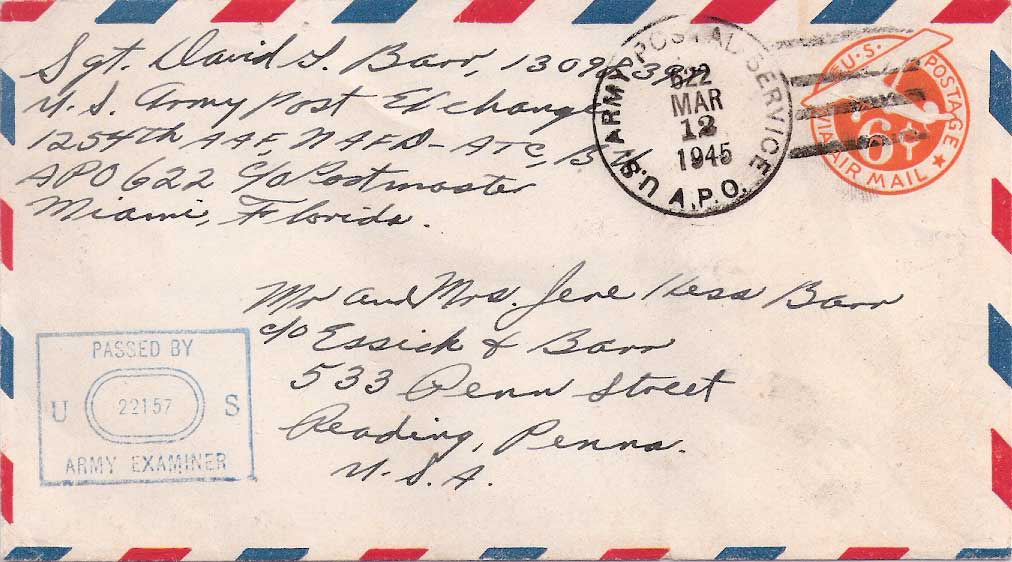 Sgt. David L. Barr,
U.S. Army Post Exchange
1254th AAF, NAFD-ATC,
APO 622 c/o Postmaster
Miami, Florida.
U.S. ARMY POSTAL SERVICE
622
MAR
12
1945
A.P.O.
U.S. POSTAGE
6¢
VIA AIR MAIL
Mr and Mrs. Jere Hess Barr
c/o Essick & Barr
533 Penn Street
Reading, Penna.
U.S.A.
PASSED BY
U 22157 S
ARMY EXAMINER